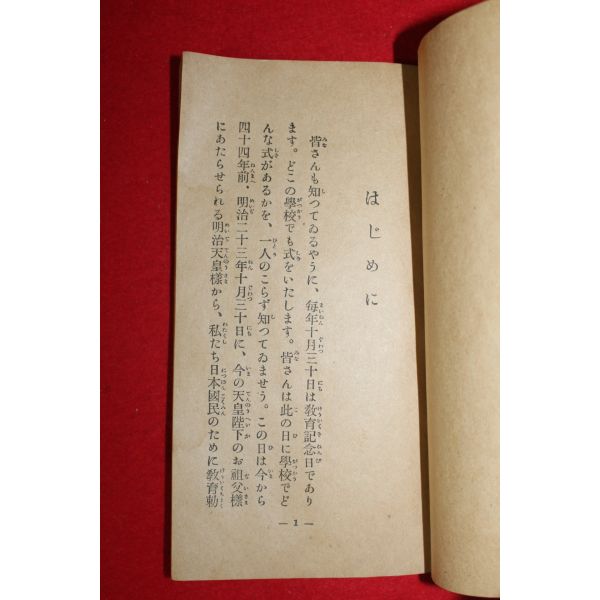 はじめに
皆さんも知つてゐるやうに、毎年十月三十日は敎育記念日であり
ます。どこの學校でも式をいたします。皆さんは此の日に學校でど
んな式があるかを、一人のこらず知つてゐませう。この日は今から
四十四年前・明治二十三年十月三十日に、今の天皇陛下のお祖父樣
にあたらせられる明治天皇樣から、私たち日本國民のために敎育勅
— 1 —